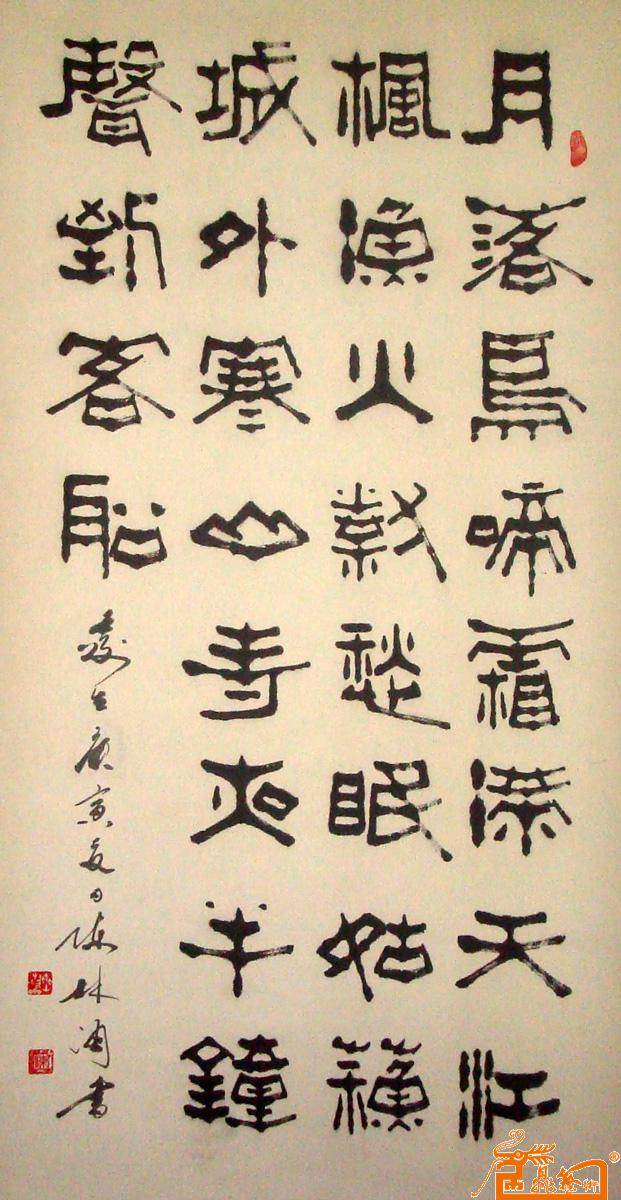 月落烏啼霜滿天江
楓漁火對愁眠姑蘓
城外寒山寺夜半鐘
聲到客船
歲在庚寅夏日陳林書